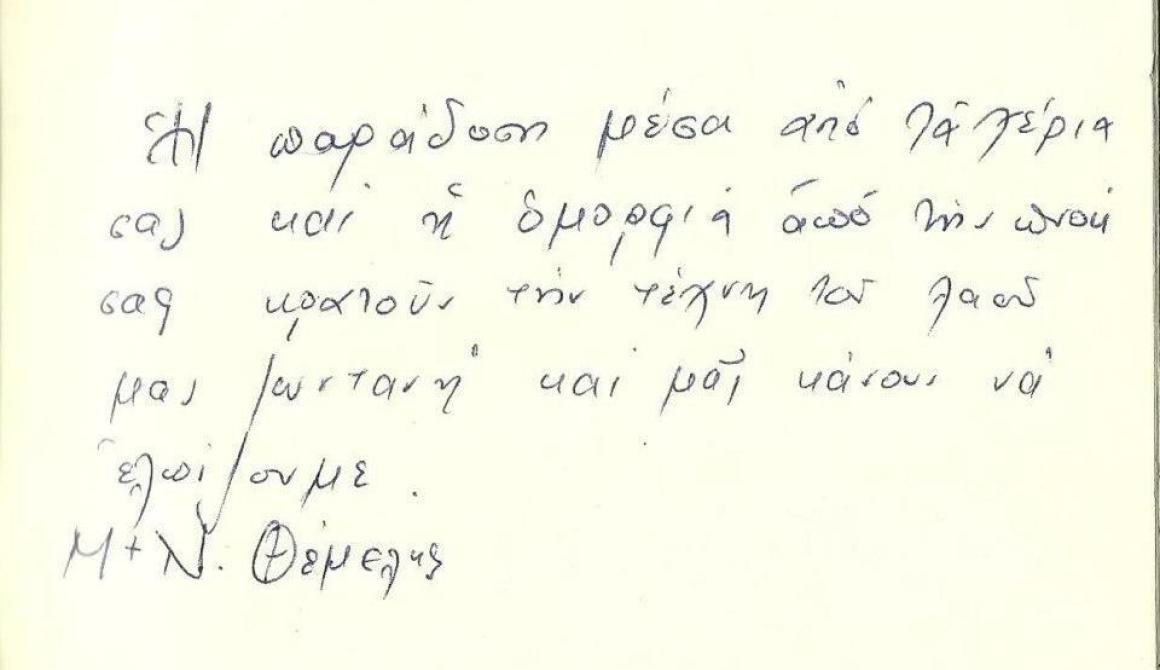 Ἡ παράδοση μέσα ἀπό τά χέρια
σας καί ἡ ὀμορφιά ἀπό τήν πνοή
σας κρατοῦν τήν τέχνη τοῦ λαοῦ
μας ζωντανή καί μᾶς κάνουν νά
ἐλπίζουμε.
Μ + Ν. Θέμελης